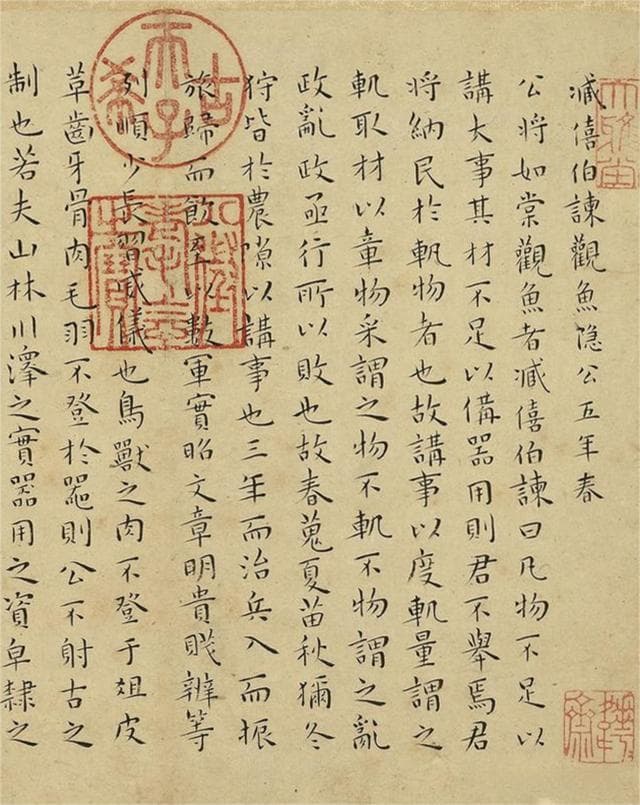 臧僖伯諫觀魚隱公五年春
公將如棠觀魚者臧僖伯諫曰凡物不足以
講大事其材不足以備器用則君不舉焉君
將納民於軌物者也故講事以度軌量謂之
軌取材以章物采謂之物不軌不物謂之亂
政亂政亟行所以敗也故春蒐夏苗秋獮冬
狩皆於農隙以講事也三年而治兵入而振
旅歸而飲至以數軍實昭文章明貴賤辨等
列順少長習威儀也鳥獸之肉不登于俎皮
草齒牙骨肉毛羽不登於器則公不射古之
制也若夫山林川澤之實器用之資皁隸之
古希天子